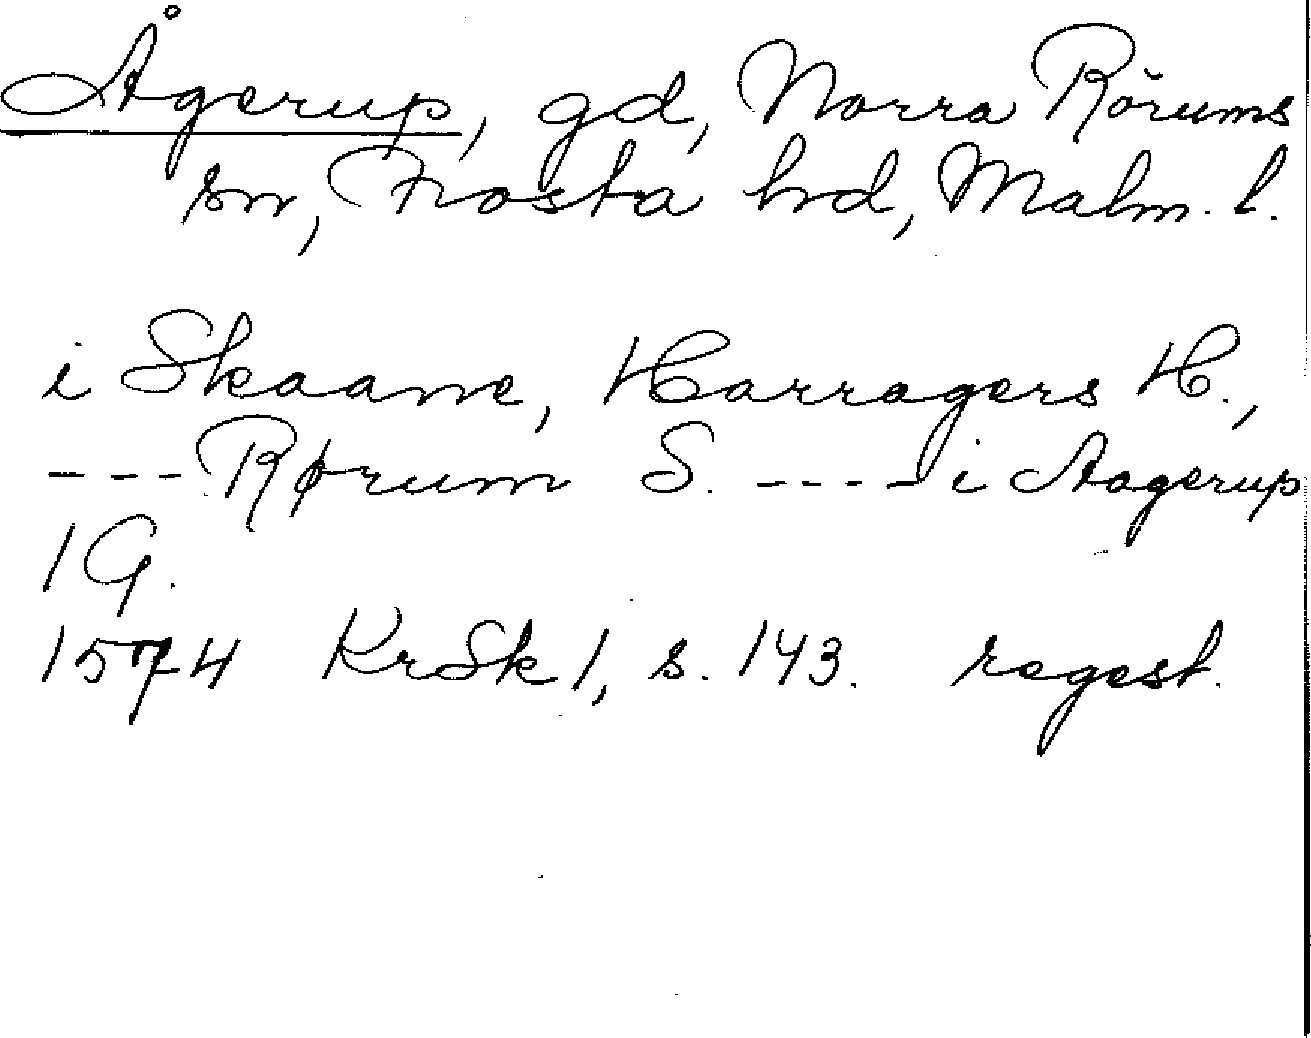 Ågerup, gd, Norra Rörums
sn, Frosta hd, Malm. l.
i Skaane, Harragers H.,
---Rørum S. ----i Aagerup
1 G.
1574 KrSk 1, s. 143. regest.